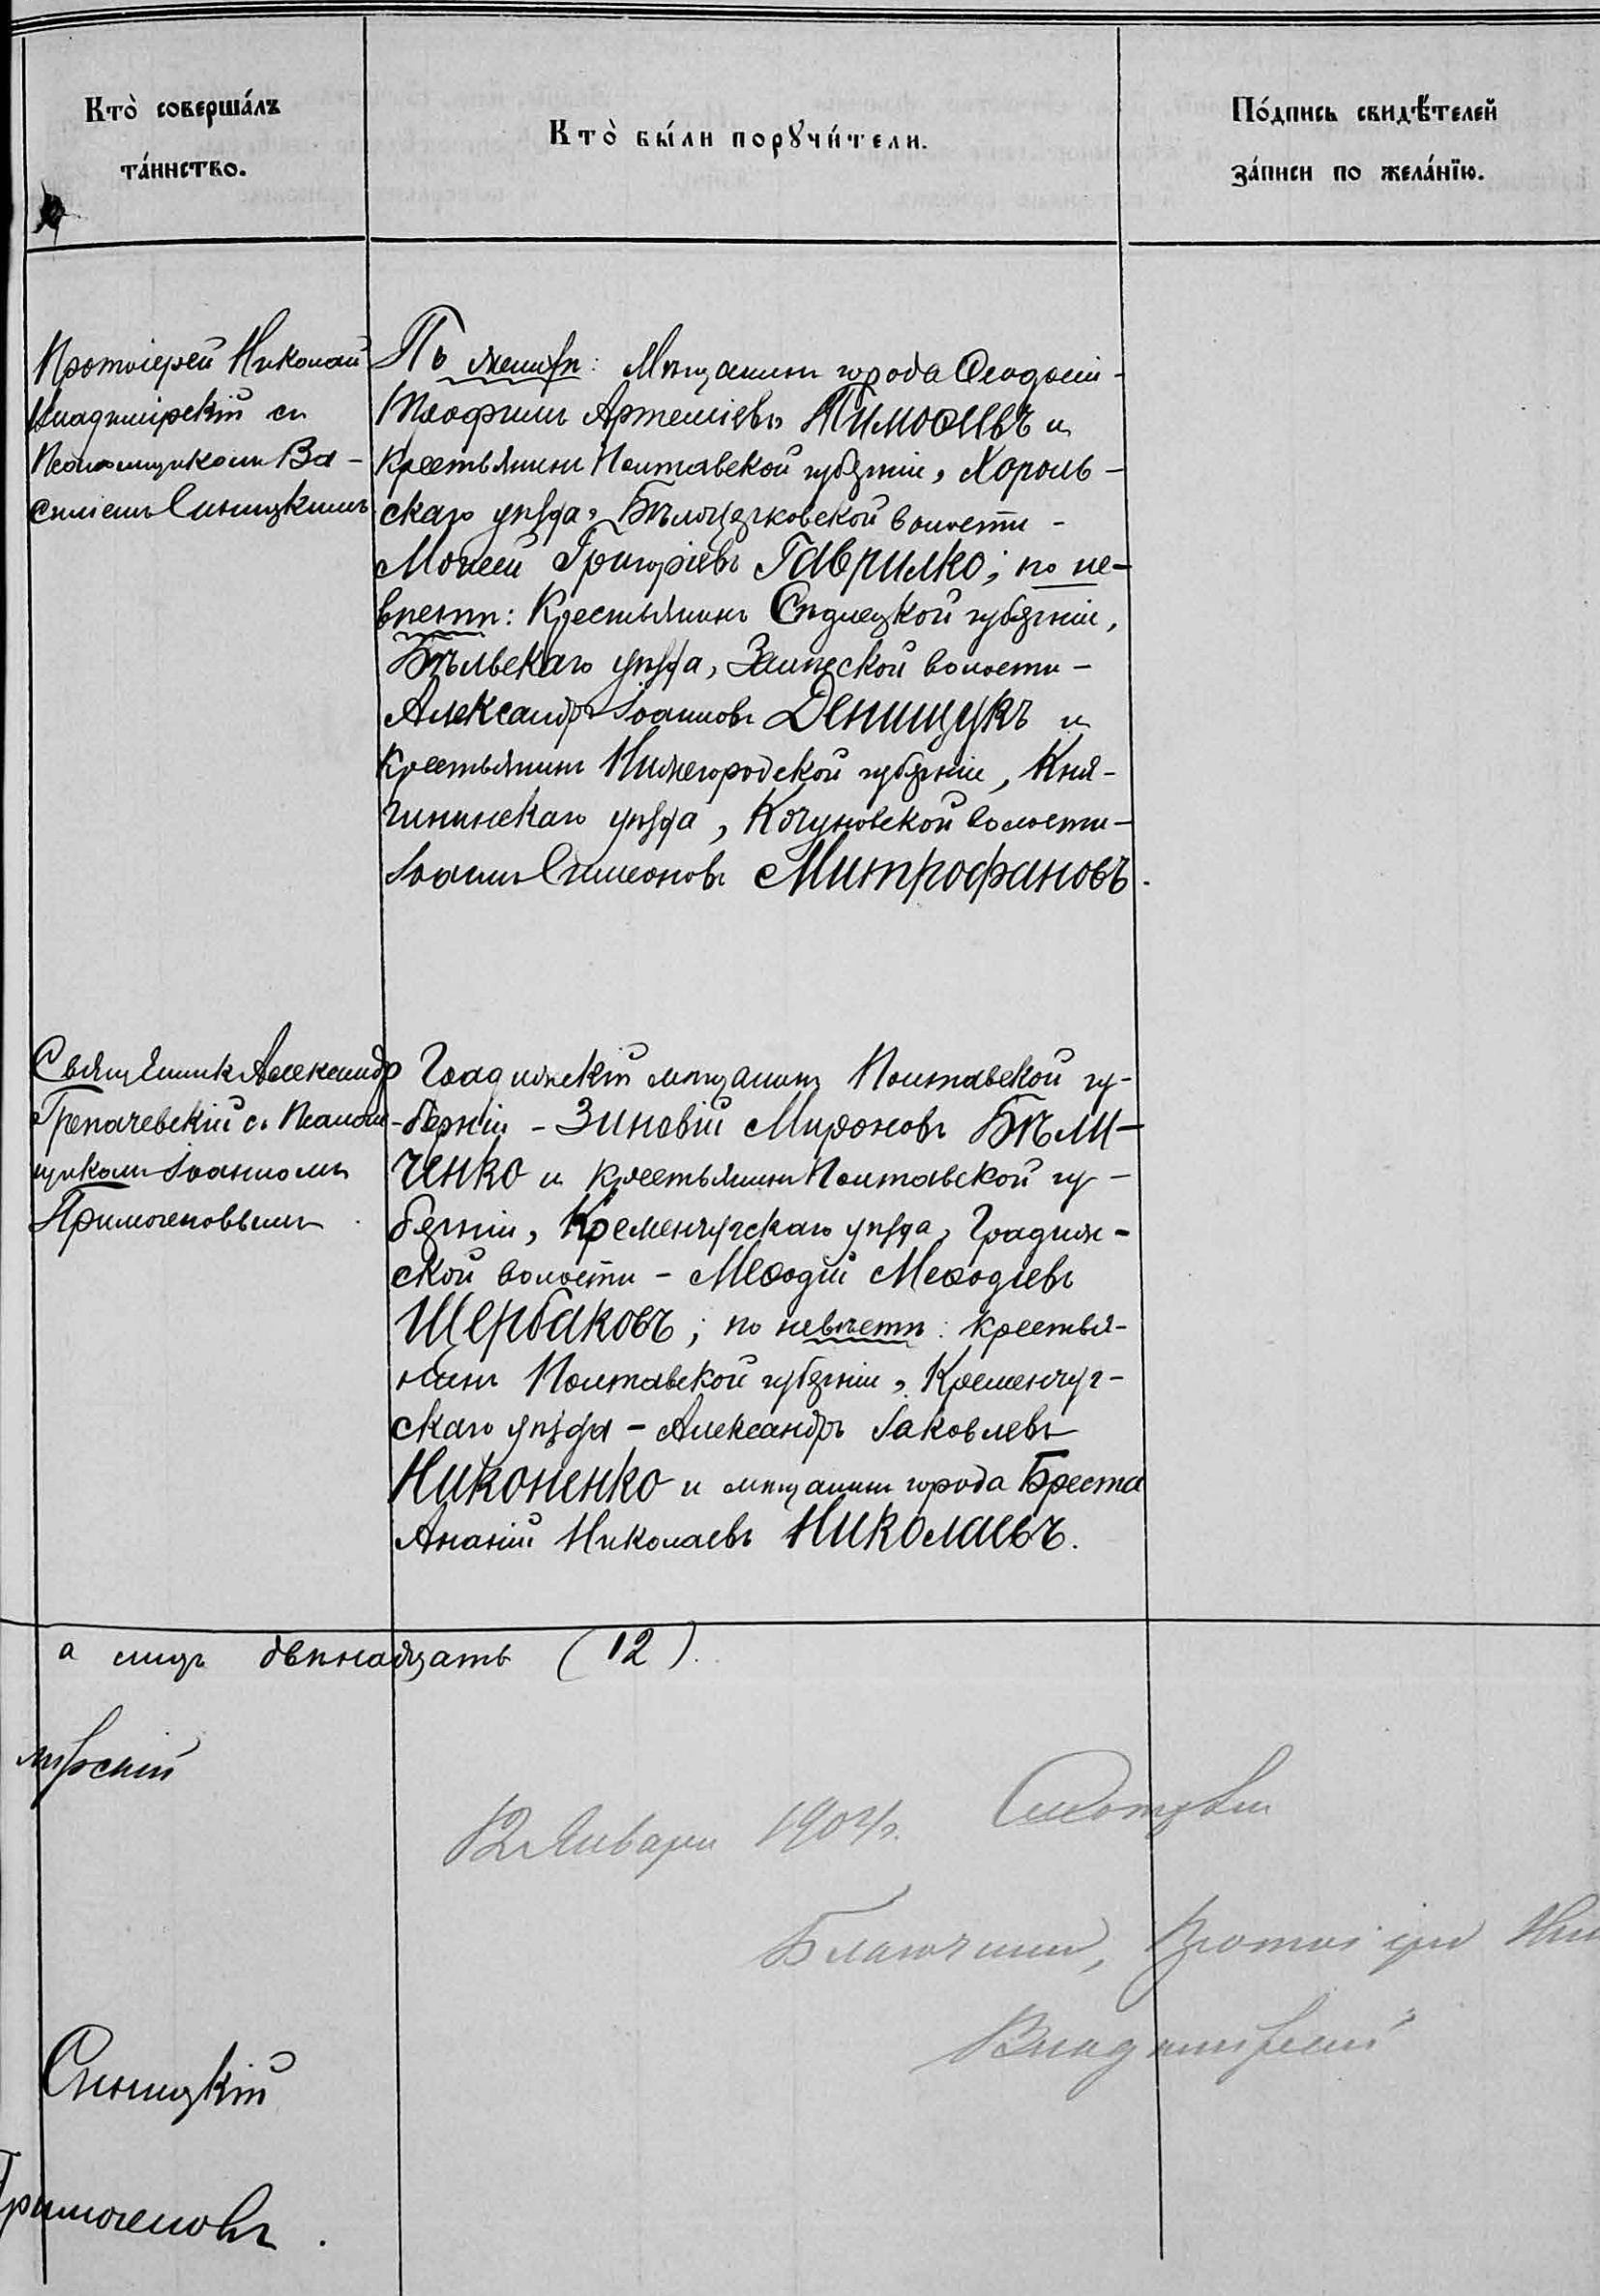 Кто̀ соверша́лъ
та́инство.
Кто̀ бы́ли порꙋчи́тели.
По́дпись свидѣ́телей
за́писи по жела́нїю.
Протоіерей Николай
Владимірскій съ
Псаломщикомъ Ва-
силіемъ Синицкимъ
По женихѣ: Мѣщанинъ города Ѳеодосіи -
Ѳеофилъ Артеміевъ Тимоѳеевъ и
Крестьянинъ Полтавской губерніи, Хороль-
скаго уѣзда, Бѣлоцерковской волости -
Моѵсей Григоріевъ Гаврилко; по не-
вѣстѣ: Крестьянинъ Сѣдлецкой губерніи,
Бѣльскаго уѣзда, волости -
Александръ Іоанновъ Денищукъ и
Крестьянинъ Нижегородской губерніи, Кня-
гининскаго уѣзда, волости -
Іоаннъ Симеоновъ Митрофановъ.
Священникъ Александръ
съ Псалом-
щикомъ Іоанномъ
Примогеновымъ
Градижскій мѣщанинъ Полтавской гу-
-берніи - Зиновій Мироновъ Бѣли-
ченко и крестьянинъ Полтавской гу-
берніи, Кременчугскаго уѣзда, Градиж-
ской волости - Меѳодій Меѳодіевъ
Щербаковъ; по невѣстѣ: крестья-
нинъ Полтавской губерніи, Кременчуг-
скаго уѣзда - Александръ Іаковлевъ
Никоненко и мѣщанинъ города Бреста
Ананій Николаевъ Николаевъ.
а лицъ двѣнадцать (12).
мірскій
12 Января 1904 г.
Благочинный, Протоіерей Ни
Владимірскій
Синицкій
Примогеновъ.